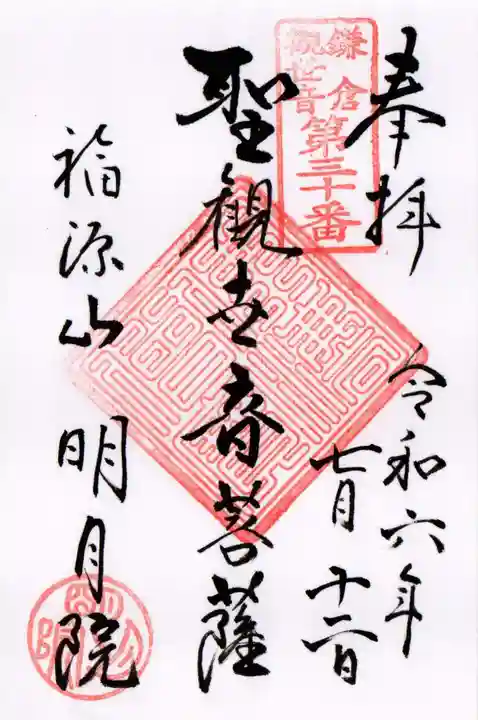 奉拝
令和六年
七月十二日
鎌倉
観世音
第三十番
聖観世音菩薩
福源山明月院